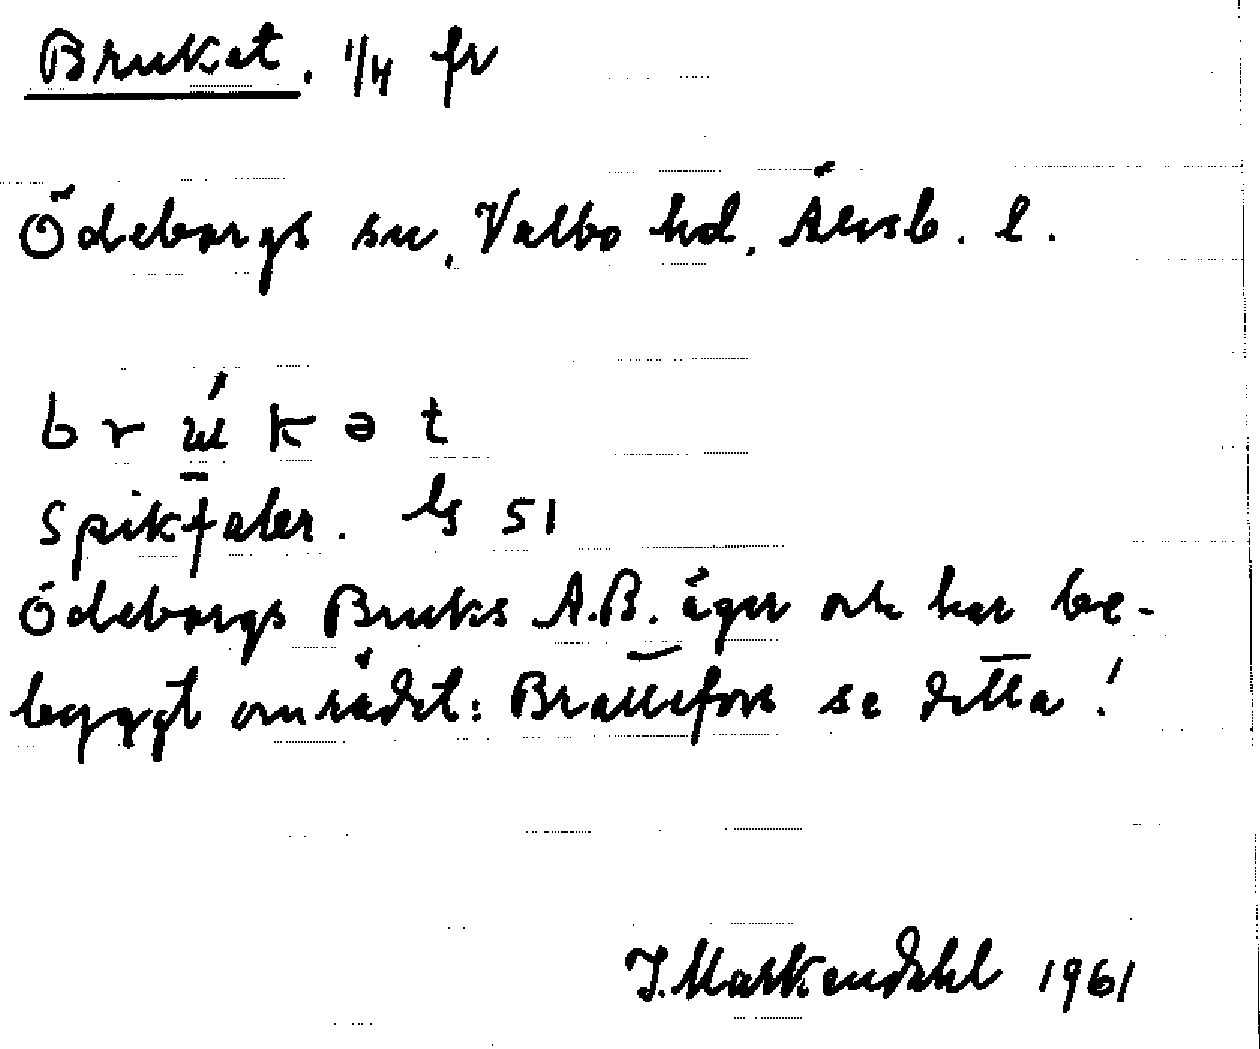 Bruket. 1/4 fr
Ödeborgs sn, Valbo hd, Älvsb. l.
b r ú k ə t
Spikfaler. G 51
Ödeborgs Bruks A.B. äger och har be-
byggt området: Brattefors se detta!
J. Markendahl 1961